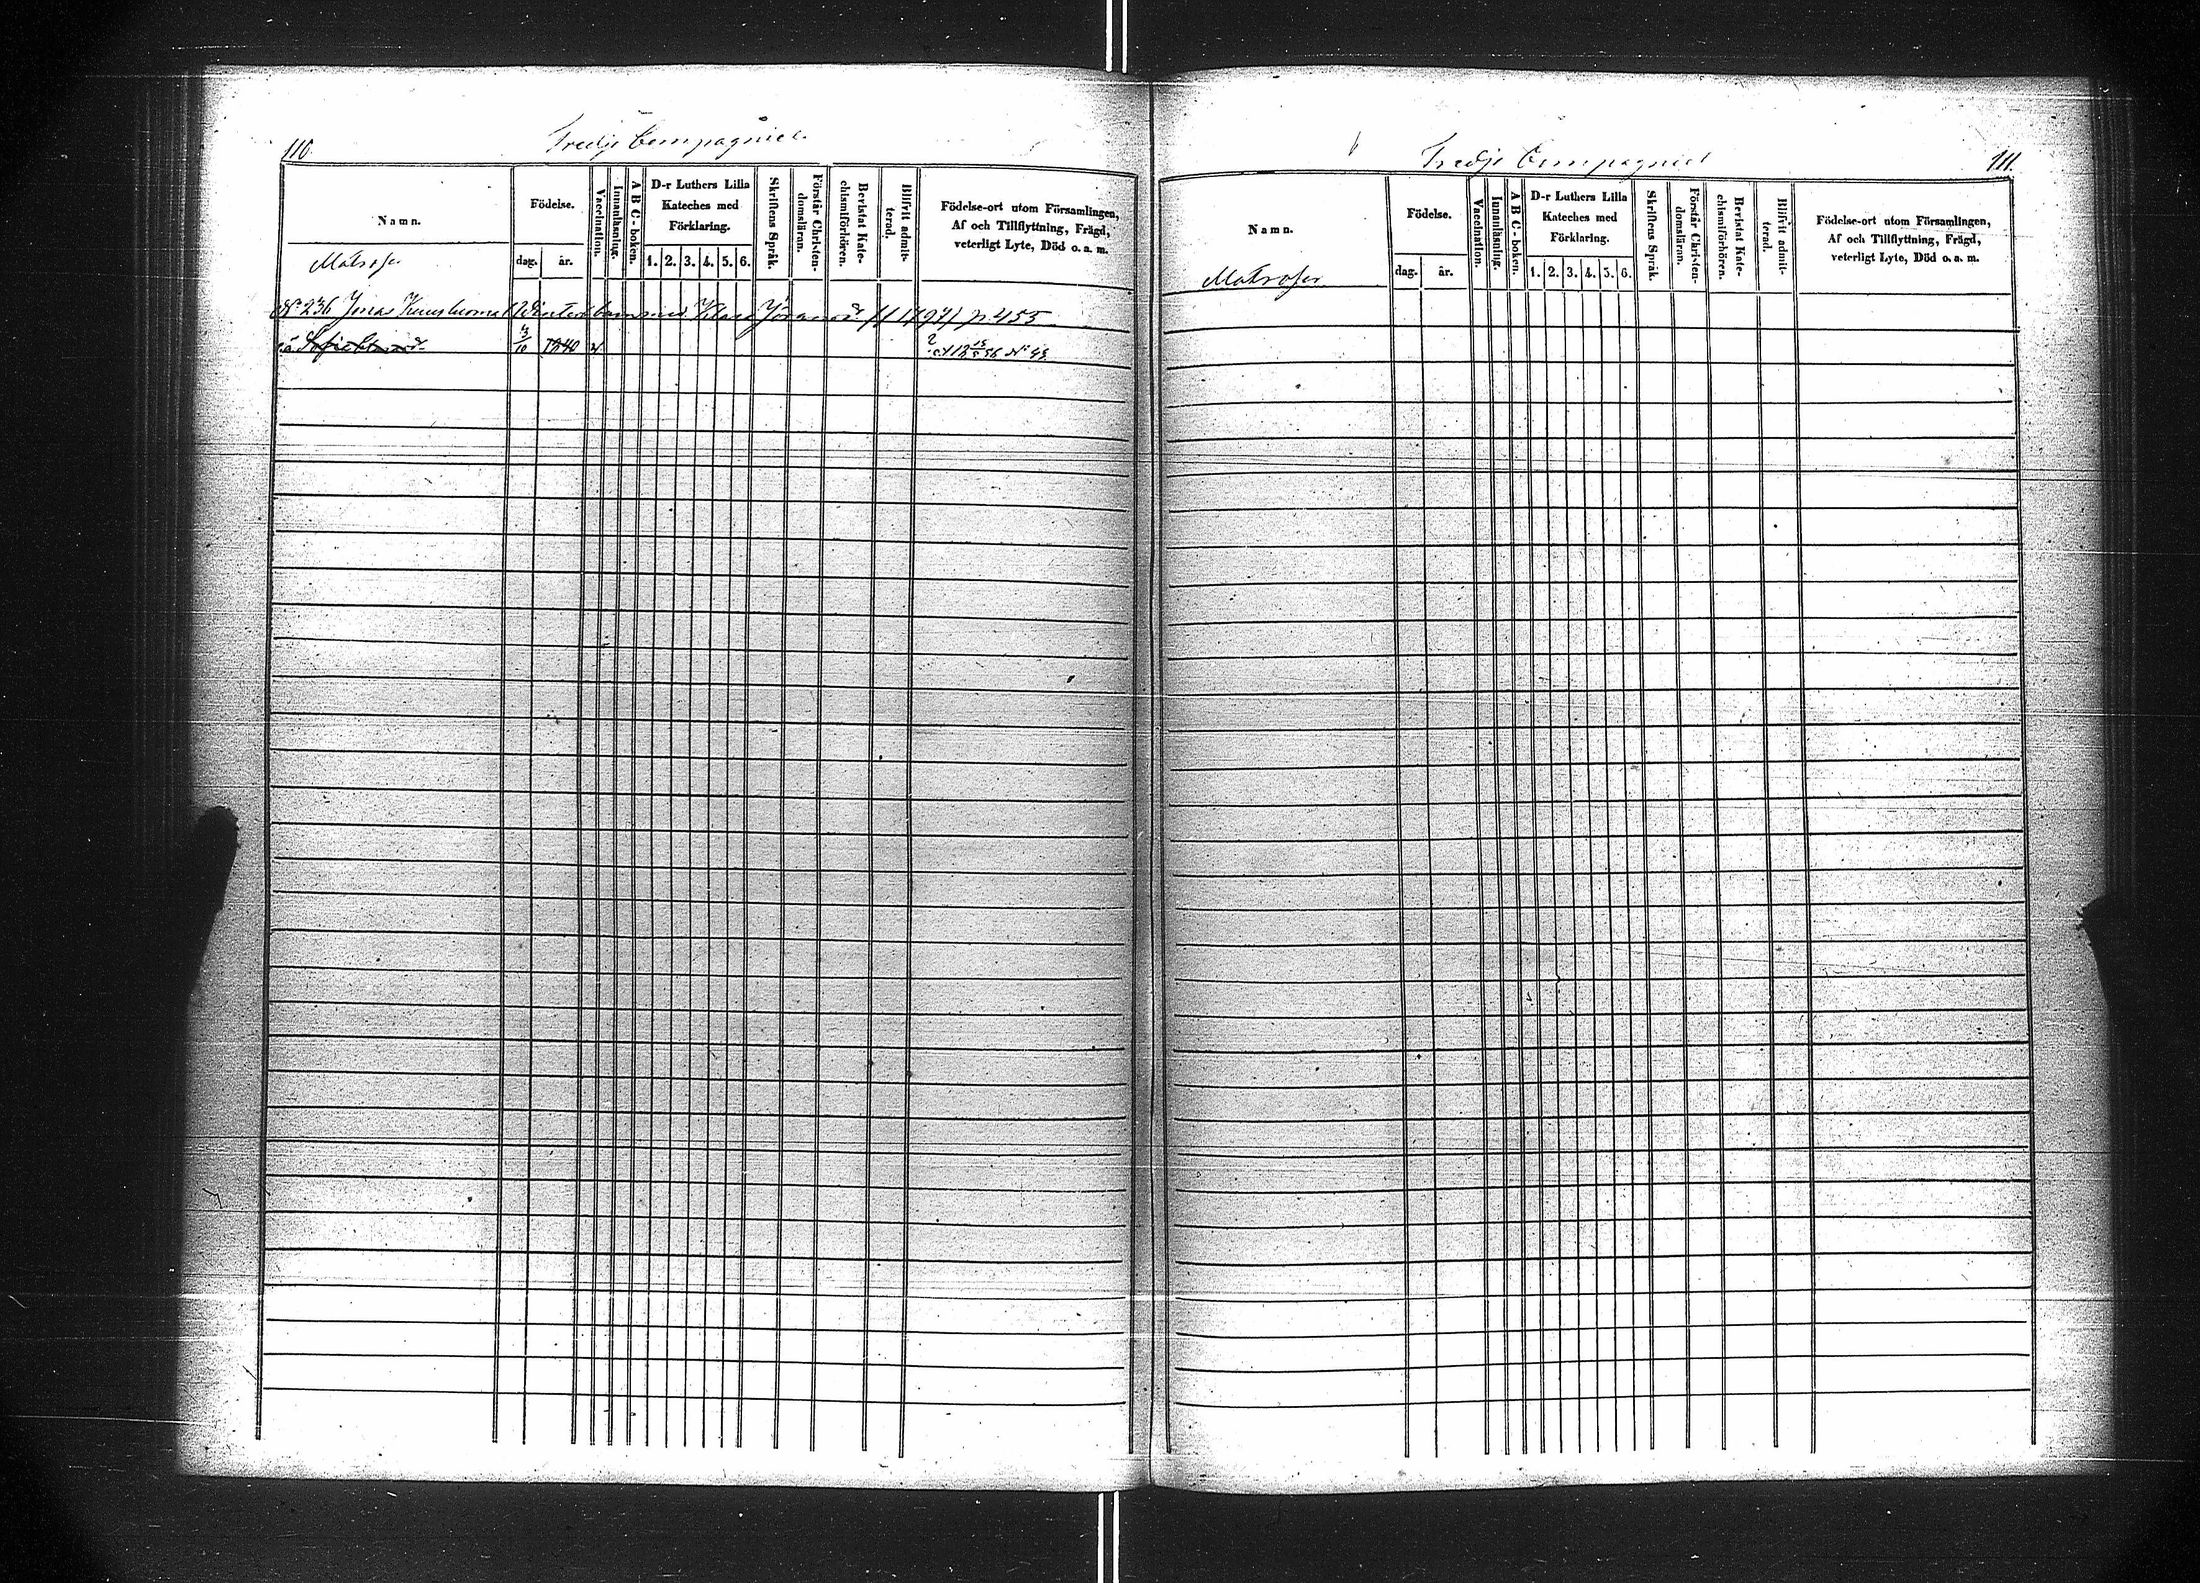 110.
Tredje Compagniet
Namn.
Födelse.
dag.
år.
Vaccination.
Innanläsning.
A B C-boken.
D-r Luthers Lilla
Kateches med
Förklaring.
1. 2. 3. 4. 5. 6.
Skriftens Språk.
Förstår Christen-
domsläran.
Bevistat Kate-
chismiförhören.
Blifvit admit-
terad.
Födelse-ort utom Församlingen,
Af och Tillflyttning, Frägd,
veterligt Lyte, Död o. a. m.
Matroser
N:o 236 Jonas p. 455
3/10 1840 v
Tredje Compagniet
111.
Namn.
Födelse.
dag.
år.
Vaccination.
Innanläsning.
A B C-boken.
D-r Luthers Lilla
Kateches med
Förklaring.
1. 2. 3. 4. 5. 6.
Skriftens Språk.
Förstår Christen-
domsläran.
Bevistat Kate-
chismiförhören.
Blifvit admit-
terad.
Födelse-ort utom Församlingen,
Af och Tillflyttning, Frägd,
veterligt Lyte, Död o. a. m.
Matroser